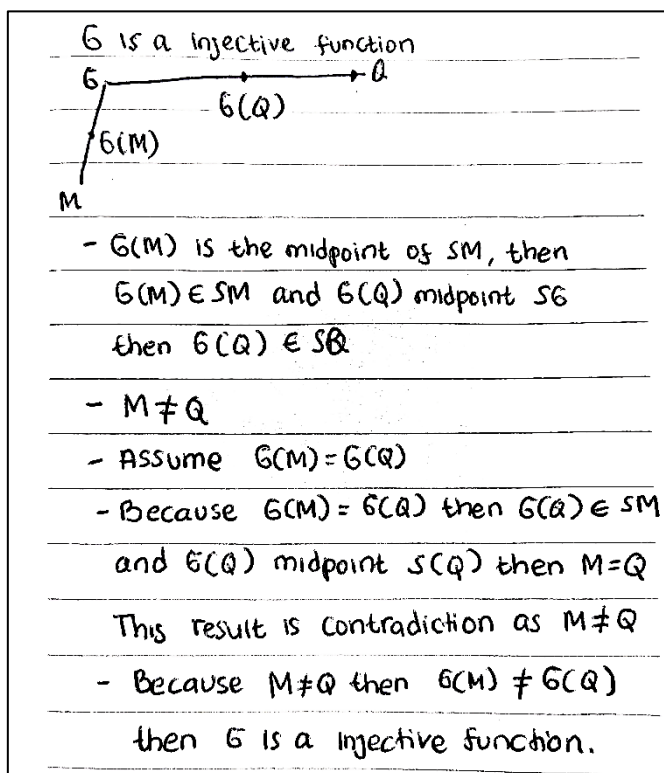 G is a injective function
G
Q
G(Q)
G(M)
M
- G(M) is the midpoint of SM, then
G(M) ∈ SM and G(Q) midpoint SG
then G(Q) ∈ SQ
- M ≠ Q
- Assume G(M) = G(Q)
- Because G(M) = G(Q) then G(Q) ∈ SM
and G(Q) midpoint S(Q) then M = Q
This result is contradiction as M ≠ Q
- Because M ≠ Q then G(M) ≠ G(Q)
then G is a injective function.